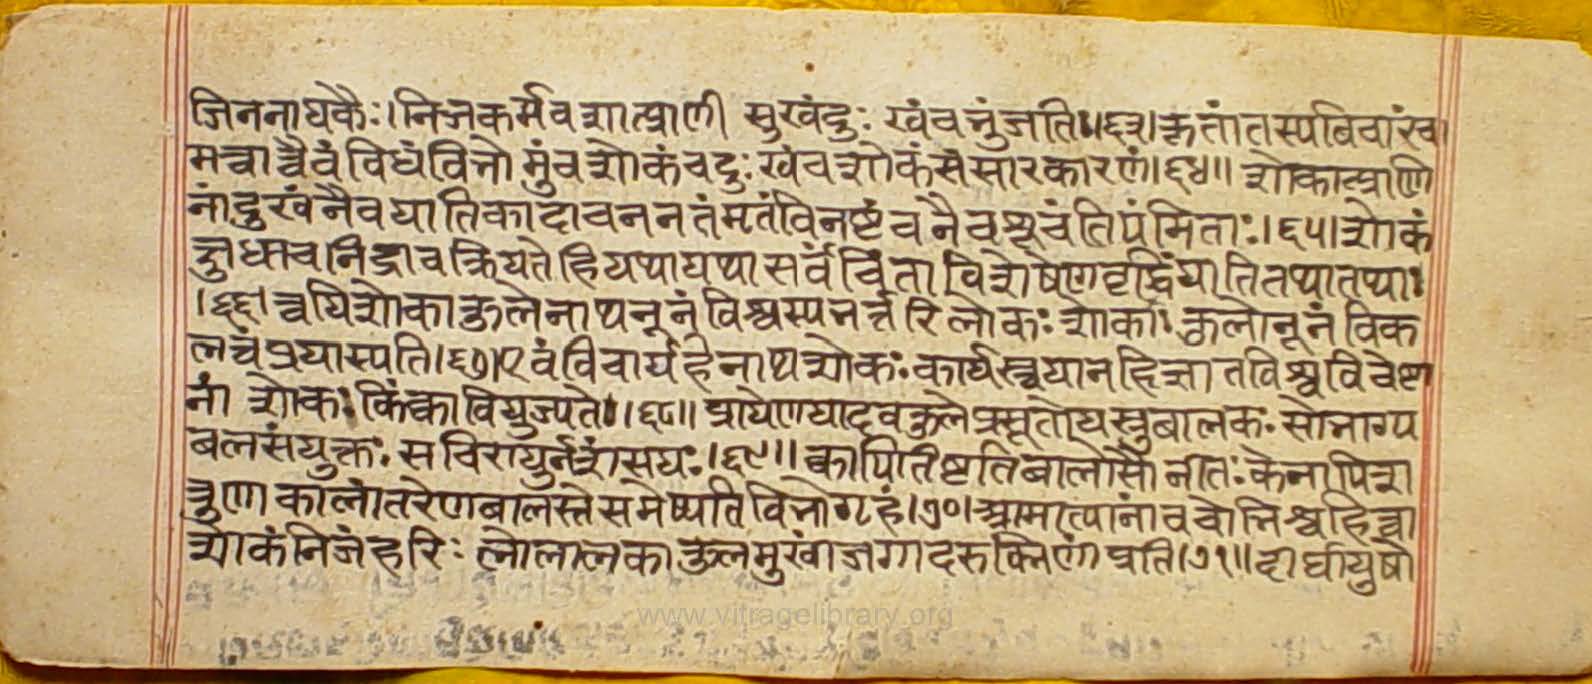 जिननायकैः।निजकर्मवशात्प्राणी सुखंदुः खंचभुंजति॥६३।कृतांतस्य
मत्वाचैवंविधंविभो मुंचशोकंचदुःखंचशोकंसंसारकारणं।६४॥ शोकात्प्राणि
नांदुखंनैवयातिकादाचन नतंमृतंविनष्टंचनैवशूचंतिपंमिताः।६५।शोकं
क्षुधाचनिद्राचक्रियतेहियथायथासर्वचिंताविशेषेणवृद्धिंयातितथातथा॥
।६६।त्वयिशोकाकुलेनाथनूनंविश्वस्पनर्त्तरिलोकःशोकाकुलोनूनंविक
लत्वंप्रयास्पति।६७।एवंविचार्यहेनाथशोकःकार्यस्त्वयानहिज्ञातविश्वविचेष्टा
नां शोकःकिंक्वावियुज्पते॥६८॥ प्रायेणयादवकुलेप्रसूतोयस्तुबालकःसोभाग्य
बलसंयुक्तःसचिरायुर्नसंसयः।६९॥क्वापितिष्टतिबालोसौनीतःकेनापिश
त्रुणाकालांतरेणबालस्तेसमेष्पतिविभोगृहं।७०।आमात्यानांवचोभिश्चहित्वा
शोकंनिजंहरिः लोलालकाकुलमुखांजगादरुक्मिणींप्रति।७१॥दीर्घायुषो
www.vitragelibrary.org